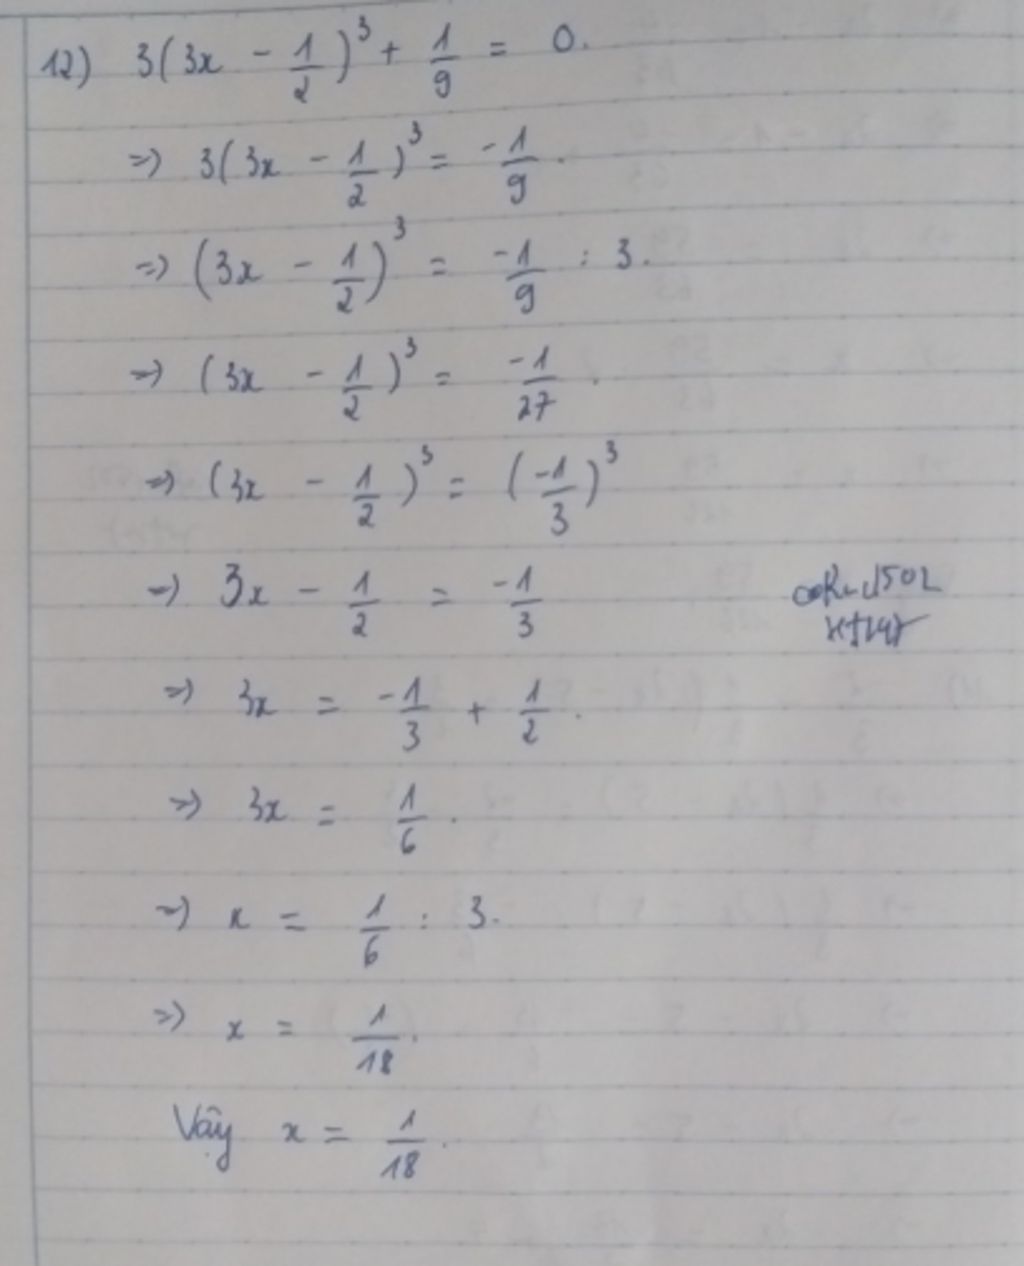 12) 3(3x - 1/2)³ + 1/9 = 0.
=> 3(3x - 1/2)³ = -1/9.
=> (3x - 1/2)³ = -1/9 : 3.
=> (3x - 1/2)³ = -1/27.
=> (3x - 1/2)³ = (-1/3)³
=> 3x - 1/2 = -1/3
=> 3x = -1/3 + 1/2.
=> 3x = 1/6.
=> x = 1/6 : 3.
=> x = 1/18.
Vậy x = 1/18.